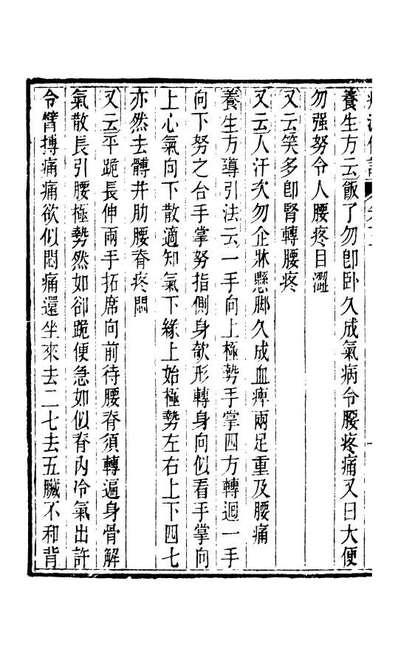 養生方云飯了勿卽卧久成氣病令腰疼痛又曰大便
勿强努令人腰疼目澀
又云笑多卽腎轉腰疼
又云人汗次勿企牀懸脚久成血痺兩足重及腰痛
養生方導引法云一手向上極勢手掌四方轉迴一手
向下努之合手掌努指側身欹形轉身向似看手掌向
上心氣向下散適知氣下緣上始極勢左右上下四七
亦然去髆井肋腰脊疼悶
又云平跪長伸兩手拓席向前待腰脊須轉遍身骨解
氣散長引腰極勢然如卻跪便急如似脊內冷氣出許
令臂搏痛痛欲似悶痛還坐來去二七去五臟不和背